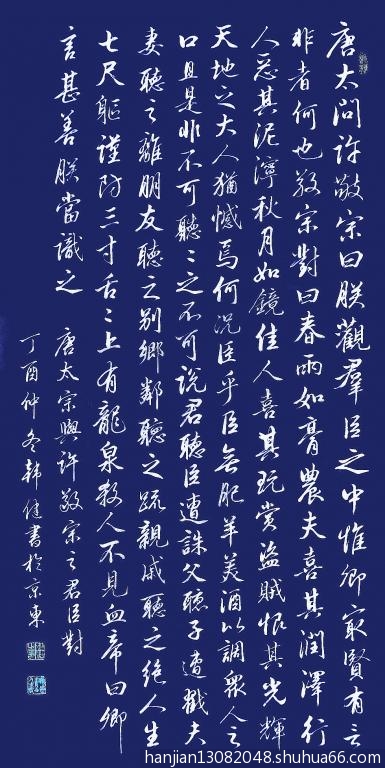 唐太问许敬宗曰朕觀羣臣之中惟卿㝡賢有言
非者何也敬宗對曰春雨如膏農夫喜其润澤行
人惡其泥濘秋月如鏡佳人喜其玩赏盜賊恨其光輝
天地之大人猶憾焉何况臣乎臣無肥羊美酒以調衆人之
口且是非不可聽〻之不可说君聽臣遭誅父聽子遭戮夫
妻聽之離朋友聽之别鄉鄰聽之疏親戚聽之绝人生
七尺軀謹防三寸舌〻上有龍泉殺人不見血帝曰卿
言甚善朕當識之
唐太宗與许敬宗之君臣對
丁酉仲冬韩健書於京東
hanjian13082048.shuhua66.com